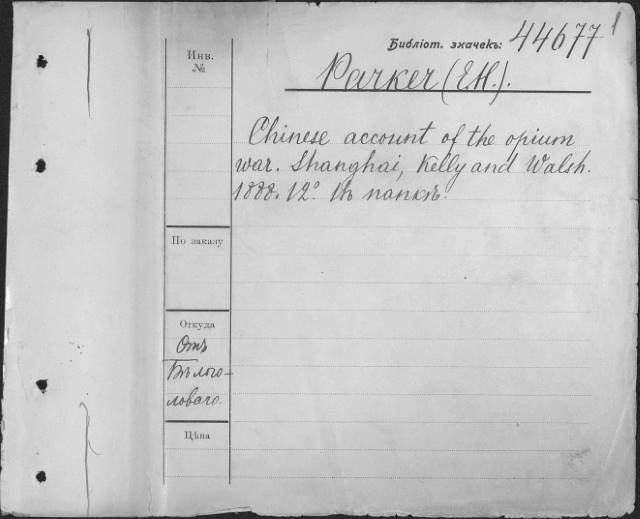 Библіот. значекъ: 44677 1
Инв. №
Parker (E.H.).
Chinese account of the opium
war. Shanghai, Kelly and Walsh.
1888. 12°. Въ папкѣ.
По заказу
Откуда
Отъ
Бѣлого-
ловаго.
Цѣна